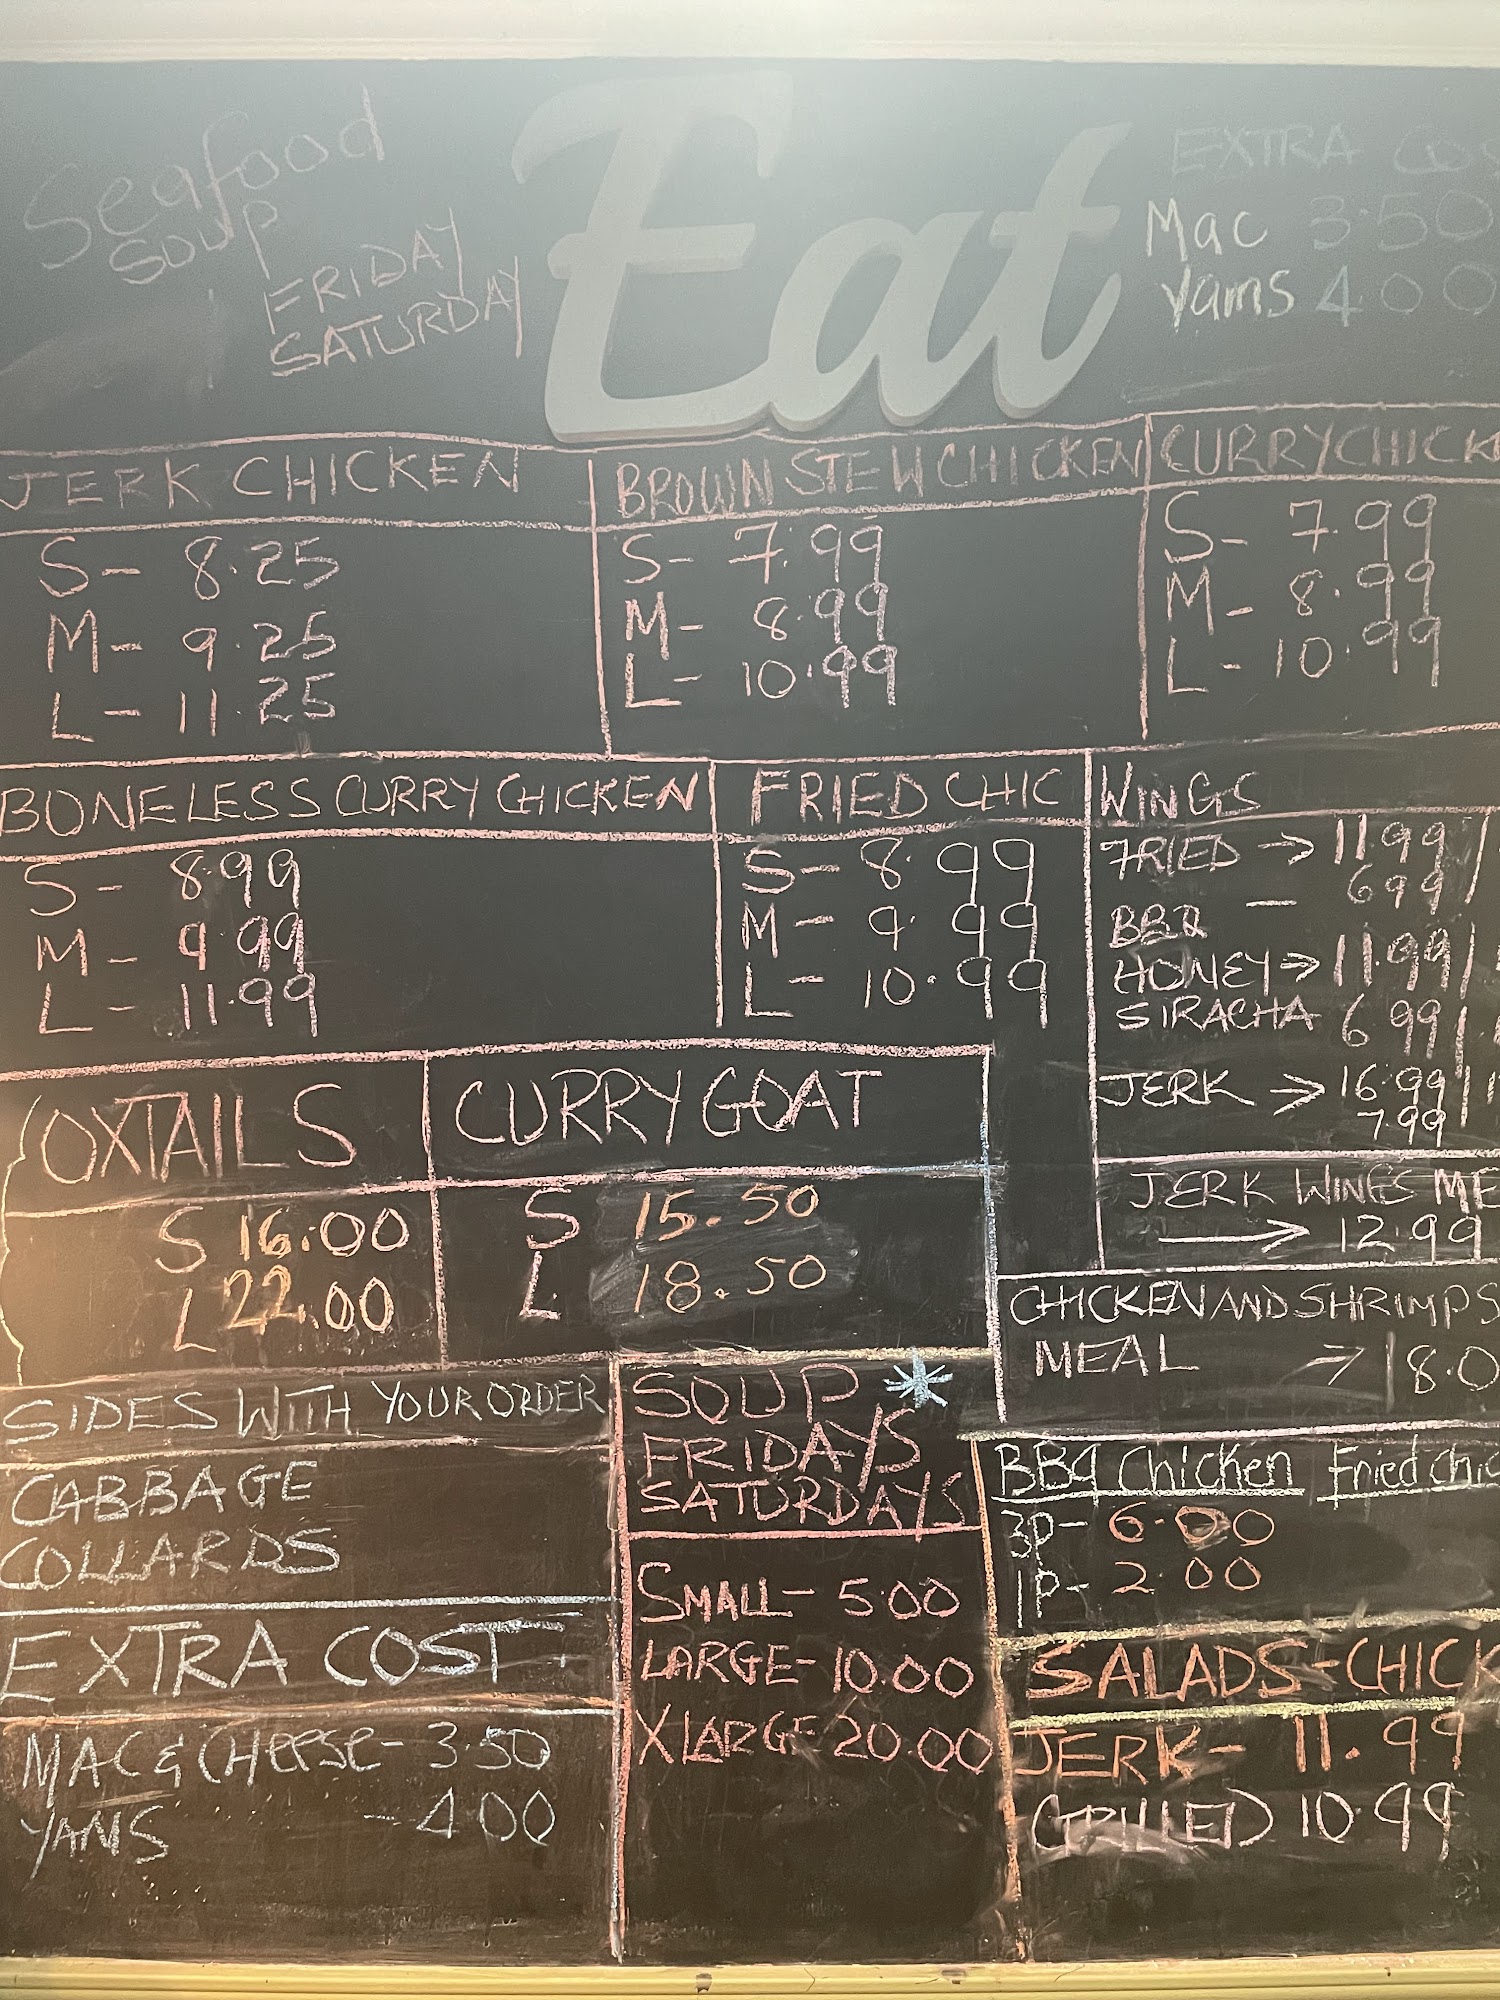 Seafood
SOUP
FRIDAY
SATURDAY
Eat
EXTRA
Mac 3.50
Yams 4.00
JERK CHICKEN
S - 8.25
M - 9.25
L - 11.25
BROWN STEW CHICKEN
S - 7.99
M - 8.99
L - 10.99
CURRY CHICK
S - 7.99
M - 8.99
L - 10.99
BONELESS CURRY CHICKEN
S - 8.99
M - 9.99
L - 11.99
FRIED CHIC
S - 8.99
M - 9.99
L - 10.99
WINGS
FRIED → 11.99 /
— 6 99 /
BBQ
HONEY → 11.99 /
SIRACHA 6 99 /
JERK → 16.99 /
7.99
JERK WINGS ME
→ 12.99
OXTAILS
S 16.00
L 22.00
CURRY GOAT
S 15.50
L 18.50
CHICKEN AND SHRIMPS
MEAL → 18.0
SIDES WITH YOUR ORDER
CABBAGE
COLLARDS
EXTRA COST
MAC & CHEESE - 3.50
YAMS - 4.00
SOUP *
FRIDAYS
SATURDAYS
SMALL - 5.00
LARGE - 10.00
X LARGE 20.00
BBQ Chicken Fried Chic
3P - 6.00
1P - 2.00
SALADS - CHICK
JERK - 11.99
GRILLED 10.99